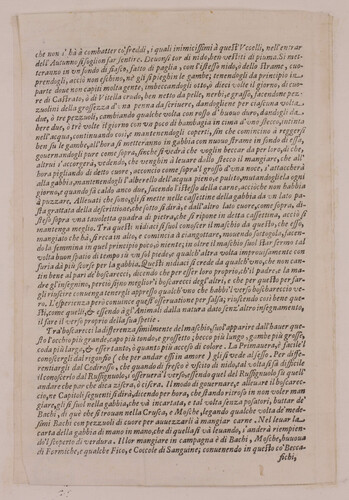 che non s'hà à combatter co' freddi, i quali inimicissimi à questi Vcelli, nell'entrar
dell'Autunno si soglion far sentire. Deuonsi tor di nido, ben vestiti di piuma. Si met-
teranno in vn fondo di fiasco, fatto di paglia, con l'istesso nido, ò dello strame, cuo-
prendogli, acciò non eschino, nè gli si pieghin le gambe, tenendogli da principio in
parte doue non capiti molta gente, imbeccandogli otto, ò dieci volte il giorno, di cuo-
re di Castrato, ò di Vitella crudo, ben netto da pelle, nerbo, e grasso, facendone pez-
zuolini della grossezza d'vna penna da scriuere, dandogliene per ciascuna volta
due, ò tre pezzuoli, cambiando qualche volta con rosso d'huouo duro, dandogli da
bere due, ò tre volte il giorno con vn poco di bambagia in cima d'vno stecco, intinta
nell'acqua, continuando così, e mantenendogli coperti, sin che comincino à reggersi
ben sù le gambe, all'hora si metteranno in gabbia con nuouo strame in fondo d'essa,
gouernandogli pure come sopra, finche si vedrà che voglin beccar da per loro, di che
altrui s'accorgerà, vedendo, che venghin à leuar dallo stecco il mangiare, che all'
hora pigliando di detto cuore, acconcio come sopra, grosso d'vna noce, s'attaccherà
alla gabbia, mantenendogli l'alberello dell'acqua pieno, e pulito, mutandogliela ogni
giorno, e quando sà caldo anco due, facendo l'istesso della carne, acciòche non habbia
à puzzare. Alleuati che sono, gli si mette nelle cassettine della gabbia, da vn lato pa-
sta grattata della descrittione, che sotto si dirà, e dall'altro lato cuore, come sopra, di-
steso sopra vna tauoletta quadra di pietra, che si ripone in detta cassettina, acciò si
mantenga meglio. Tra questi nidiaci si suol conoscer il maschio da questo, che esso,
mangiato che hà, si tira in alto, e comincia à cingottare, mouendo la gola, facen-
do la femmina in quel principio poco, ò niente; in oltre il maschio suol star fermo tal
volta buon spatio di tempo sù vn sol piede, e qualch'altra volta impetuosamente con
furia dà più scorse per la gabbia. Questi nidiaci si crede da qualch'vno, che non can-
tin bene al pari de' boscarecci, dicendo che per esser loro proprio, ch'il padre, e la ma-
dre gl'insegnino, perciò sino meglio i boscarecci degl'altri, e che per questo per far-
gli riuscire conuenga tenergli appresso qualch'vno che habbi il verso boscareccio ve-
ro. L'esperienza però conuince quest'osseruatione per falsa, riuscendo così bene que-
sti, come quelli, & essendo agl'Animali dalla natura dato senz'altro insegnamento,
il fare il verso proprio della sua spetie.
Trà boscarecci la differenza similmente del maschio, suol'apparire dall'hauer que-
sto l'occhio più grande, capo più tondo, e grossetto; becco più lungo, gambe più grosse,
coda più larga, & esser tanto, ò quanto più acceso di colore. La Primauera, è facile l
conoscergli dal rigonfio (che per andar essi in amore) gli si vede al sesso. Per diffe-
rentiargli dal Codirosso, che quando di fresco è vscito di nido, tal volta si fà difficile
il conoscerlo dal Rusignuolo, s'osseruerà il verso, essendo quel del Rusignuolo sù quell'
andare che par che dica ziscra, ò ciscra. Il modo di gouernare, e alleuare il boscarec-
cio, ne Capitoli seguenti si dirà, dicendo per hora, che stando ritroso in non voler man-
giare, gli si suol nella gabbia, che và incartata, e tal volta senza posatori, buttar de'
Bachi, di què che si trouan nella Crusca, e Mosche, legando qualche volta de' mede-
simi Bachi con pezzuoli di cuore per auuezzarli à mangiar carne. Nel leuar la
carta della gabbia di mano in mano, che di quella si và leuando, s'anderà riempien-
do'l sospetto di verdura. Il lor mangiare in campagna è di Bachi, Mosche, huoua
di Formiche, e qualche Fico, e Coccole di Sanguine; conuenendo in questo co' Becca-
fichi,